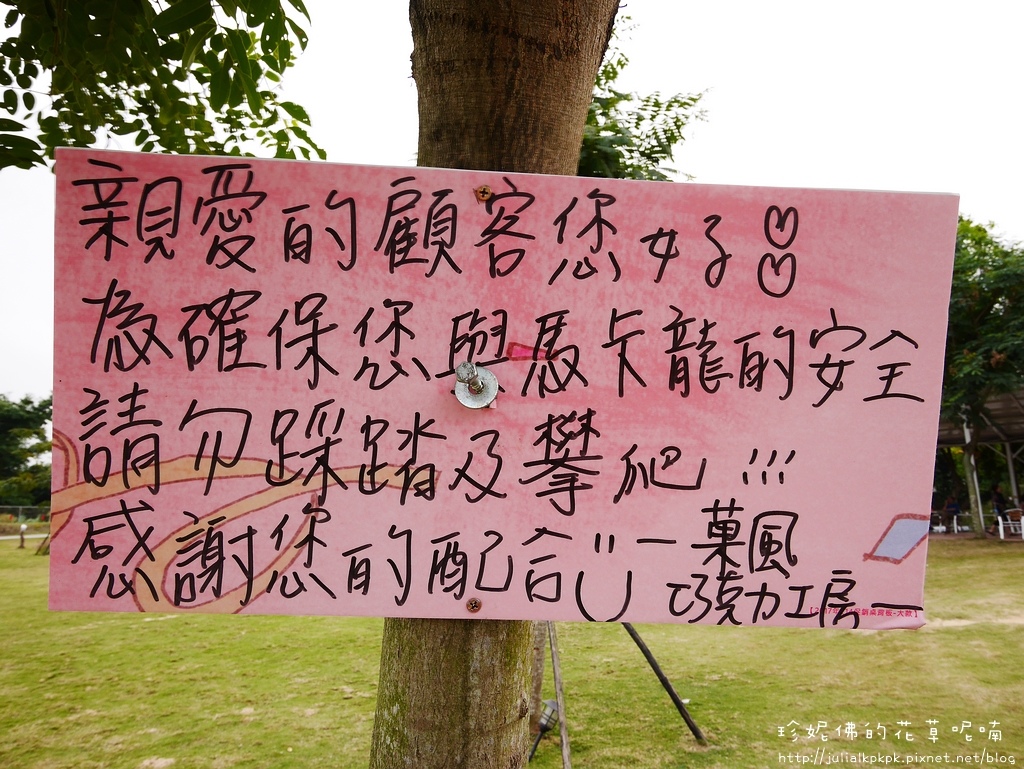 親愛的顧客您好
為確保您與馬卡龍的安全
請勿踩踏及攀爬!!!
感謝您的配合 一菓風
巧克力工房一
珍妮佛的花草呢喃
http://julialkpkpk.pixnet.net/blog